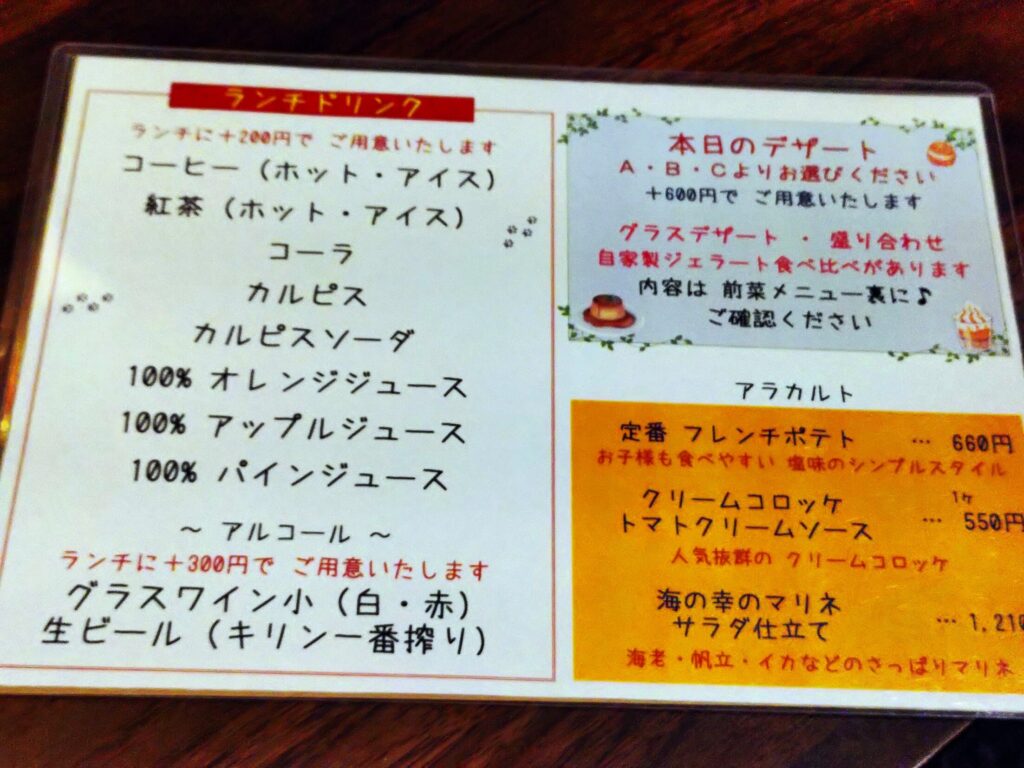 ランチドリンク
ランチに＋200円で ご用意いたします
コーヒー（ホット・アイス）
紅茶（ホット・アイス）
コーラ
カルピス
カルピスソーダ
100% オレンジジュース
100% アップルジュース
100% パインジュース
～ アルコール ～
ランチに＋300円で ご用意いたします
グラスワイン小（白・赤）
生ビール（キリン一番搾り）
本日のデザート
A・B・Cよりお選びください
＋600円で ご用意いたします
グラスデザート ・ 盛り合わせ
自家製ジェラート食べ比べがあります
内容は 前菜メニュー裏に♪
ご確認ください
アラカルト
定番 フレンチポテト … 660円
お子様も食べやすい 塩味のシンプルスタイル
クリームコロッケ 1ケ
トマトクリームソース … 550円
人気抜群の クリームコロッケ
海の幸のマリネ
サラダ仕立て … 1,210
海老・帆立・イカなどのさっぱりマリネ